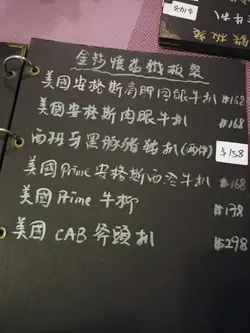 金莎懷舊鐵板餐
美國安格斯肩胛肉眼牛扒 $168
美國安格斯肉眼扒 $168
西班牙黑豚豬鞍扒(两件) $158
美國Prime安格斯西冷牛扒 $168
美國Prime牛柳 $178
美國CAB斧頭扒 $298